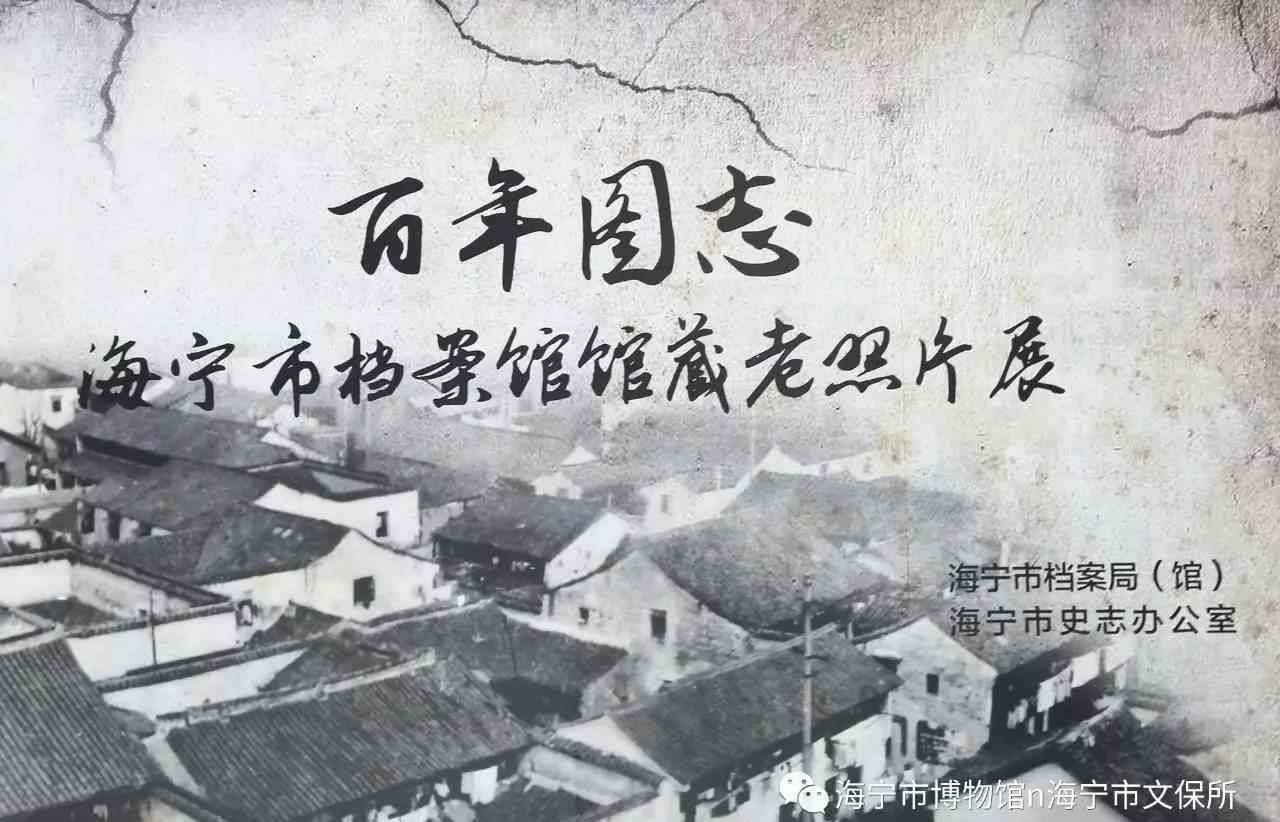 百年图志
海宁市档案馆馆藏老照片展
海宁市档案局（馆）
海宁市史志办公室
海宁市博物馆n海宁市文保所